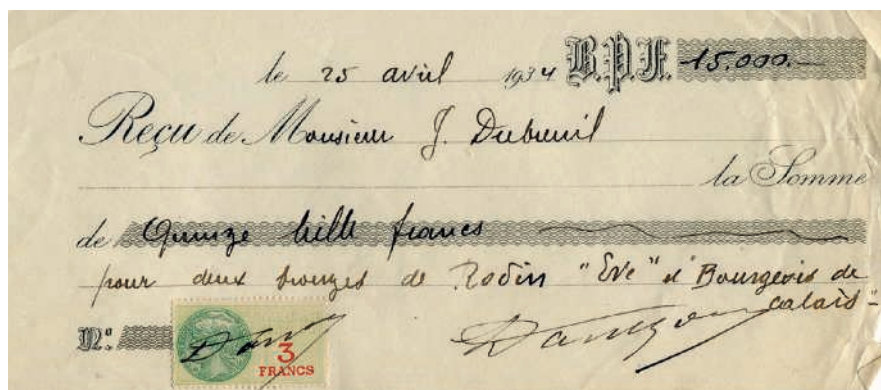 le 25 avril 1934 B.P.F. 15.000.-
Reçu de Monsieur J. Dubreuil
la Somme
de Quinze Mille francs
pour deux bronzes de Rodin "Eve" et "Bourgeois de
Calais"
N.o
3
FRANCS